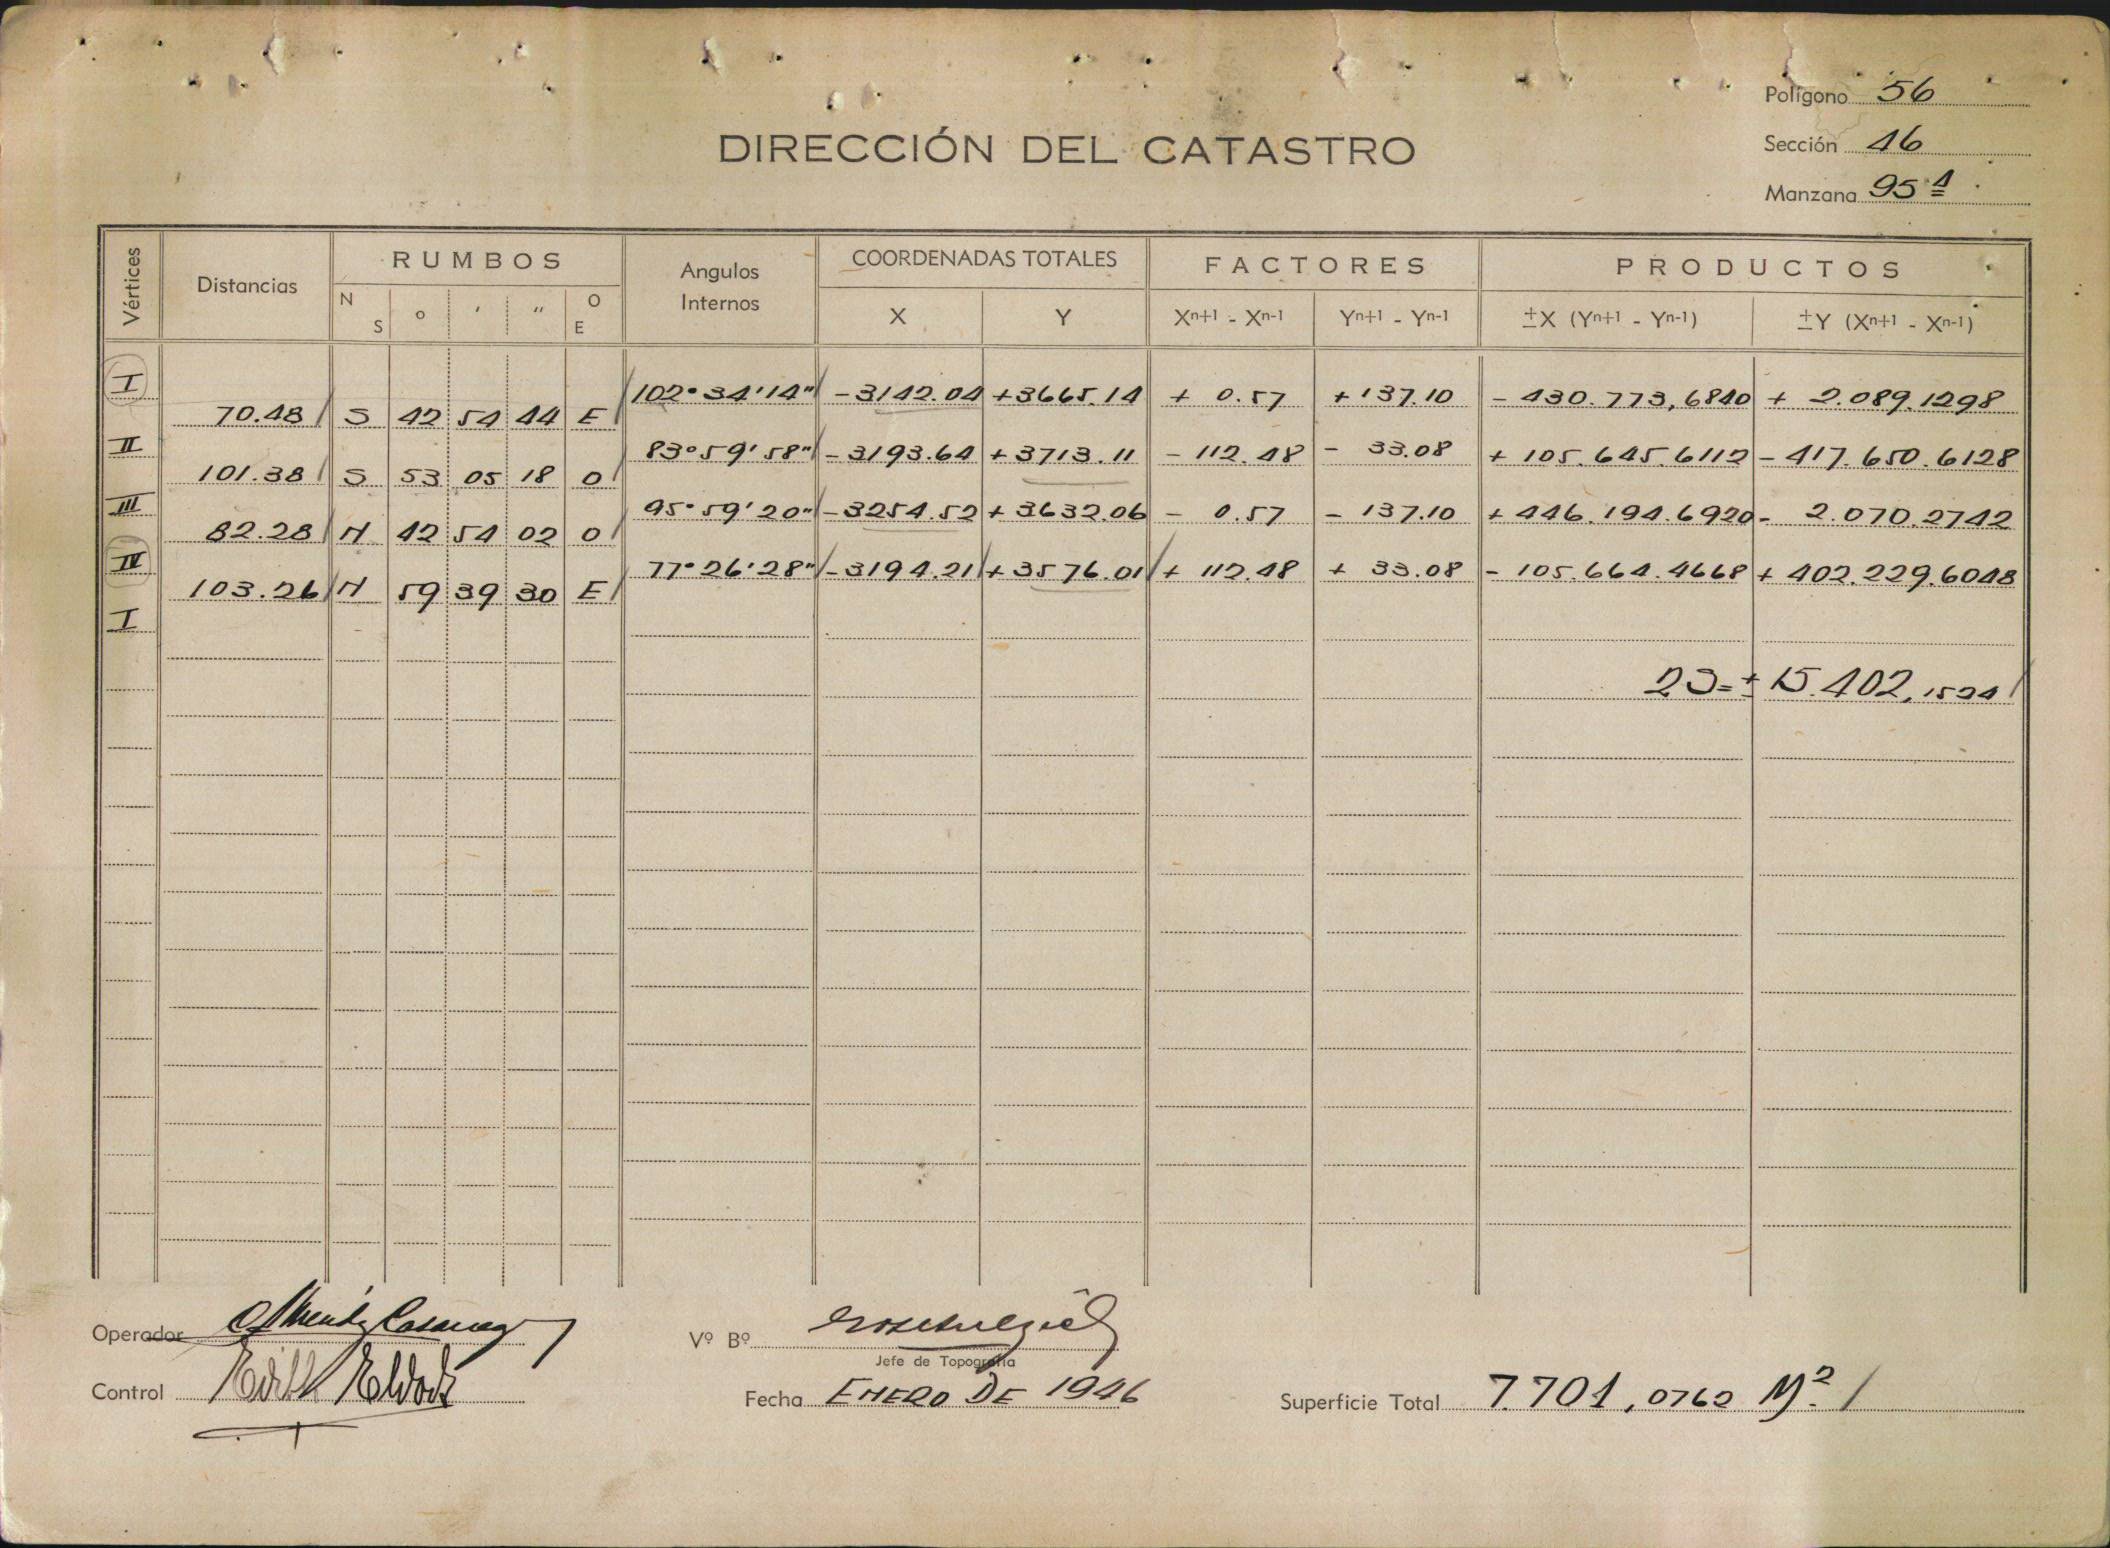 Polígono 56
DIRECCIÓN DEL CATASTRO
Sección 46
Manzana 95 A
Vértices Distancias RUMBOS Angulos Internos COORDENADAS TOTALES FACTORES PRODUCTOS
N S o ' " O E X Y Xⁿ⁺¹ - Xⁿ⁻¹ Yⁿ⁺¹ - Yⁿ⁻¹ ±X (Yⁿ⁺¹ - Yⁿ⁻¹) ±Y (Xⁿ⁺¹ - Xⁿ⁻¹)
I 102° 34' 14" - 3142.04 + 3665.14 + 0.57 + 137.10 - 430.773,6840 + 2.089.1298
70.48 S 42 54 44 E
II 83° 59' 58" - 3193.64 + 3713.11 - 112.48 - 33.08 + 105.645.6112 - 417.650.6128
101.38 S 53 05 18 O
III 95° 59' 20" - 3254.52 + 3632.06 - 0.57 - 137.10 + 446.194.6920 - 2.070.2742
82.28 N 42 54 02 O
IV 77° 26' 28" - 3194.21 + 3576.01 + 112.48 + 33.08 - 105.664.4668 + 402.229.6048
103.26 N 59 39 30 E
I
2S = ± 15.402,1524
Operador
Vº Bº
Jefe de Topografía
Control
Fecha ENERO DE 1946
Superficie Total 7.701,0762 M²